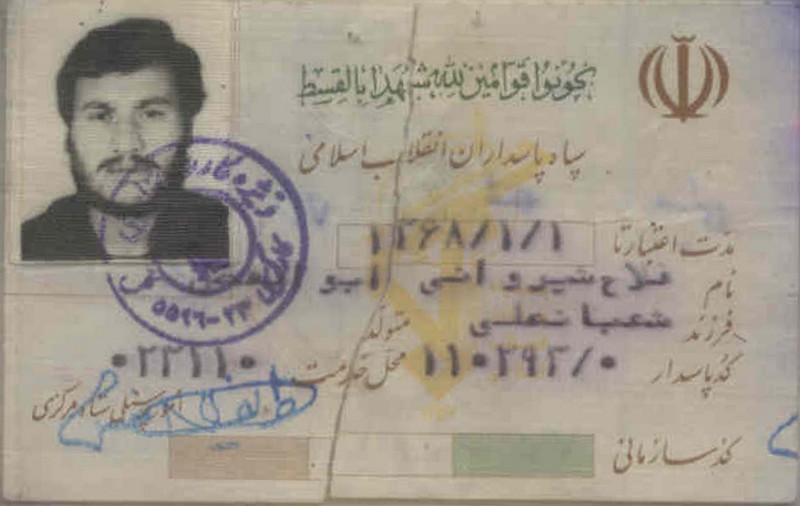 كونوا قوامين لله شهداء بالقسط
سپاه پاسداران انقلاب اسلامی
مدت اعتبار تا ۱۳۶۸/۱/۱
نام فلاح شیروانی ابو
فرزند شعبانعلی متولد
کد پاسدار ۱۱۰۲۹۲/۰ محل خدمت ۰۲۲۱۱۰
ستاد مرکزی
کد سازمانی
ویژه
۵۵۲۶-۲۳